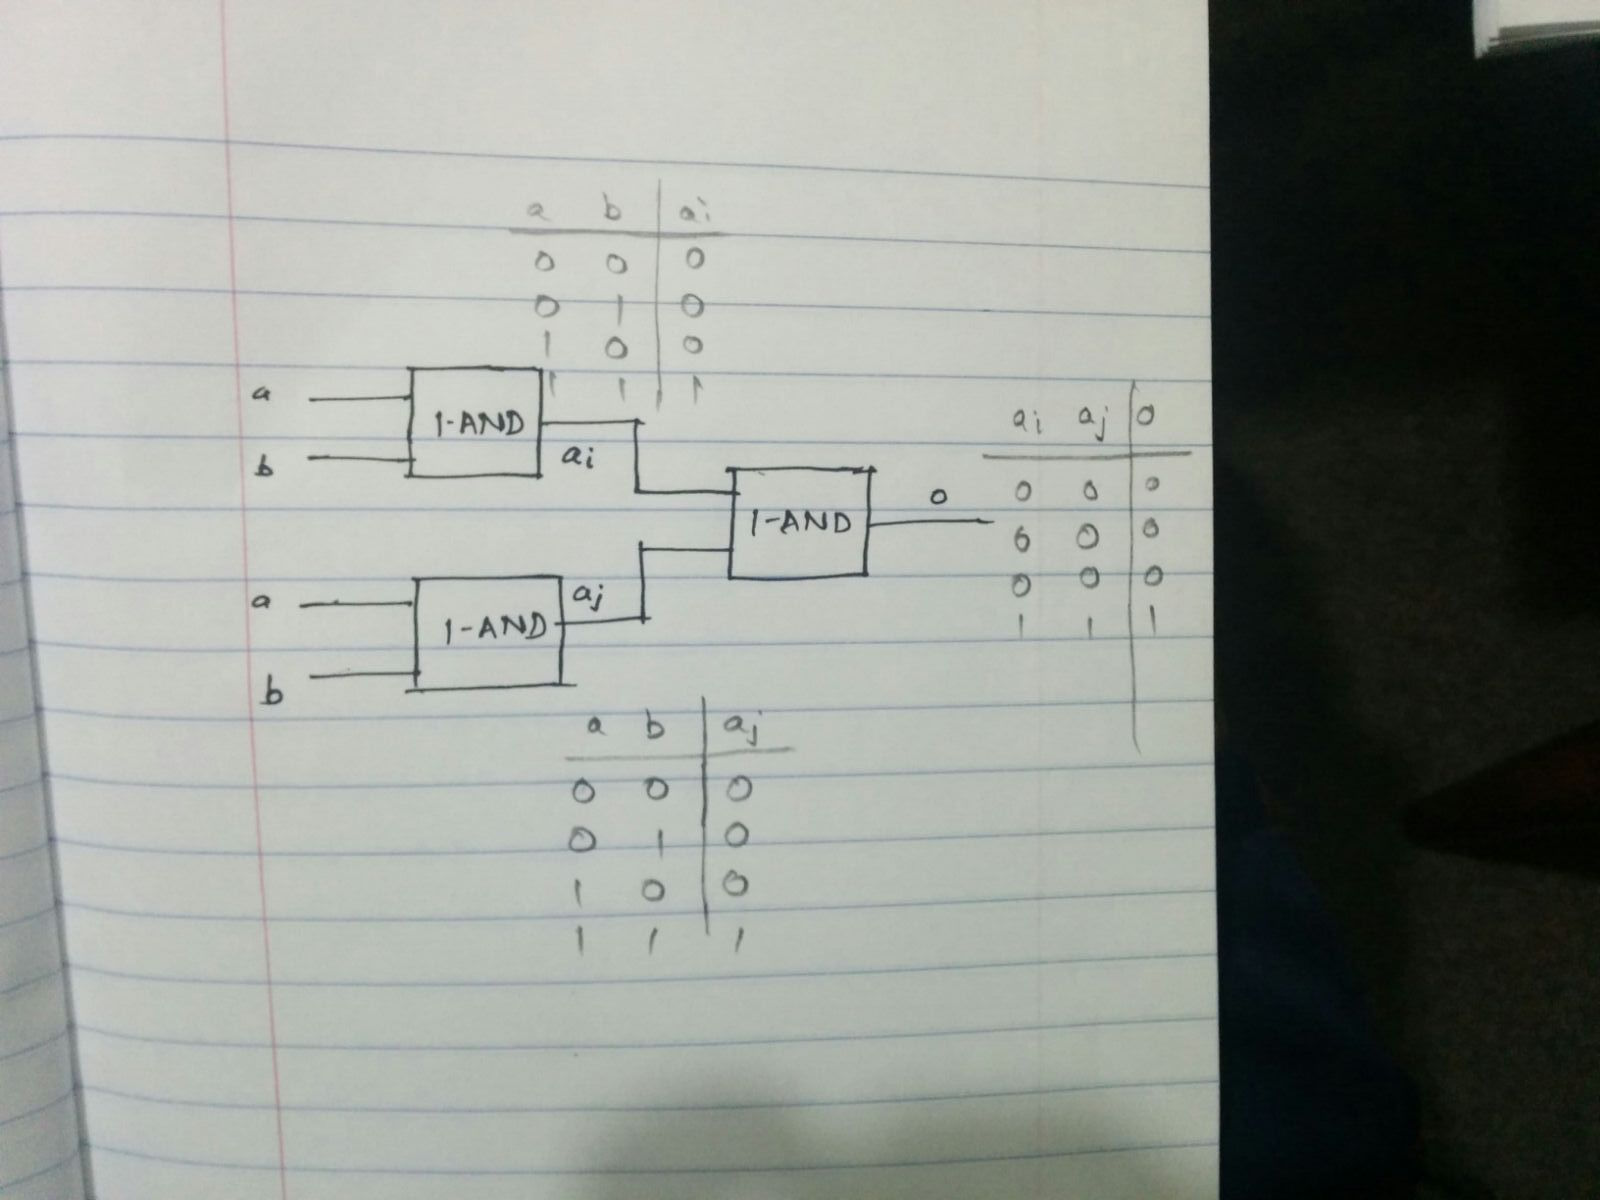 a b ai
0 0 0
0 1 0
1 0 0
1 1 1
a
b
1-AND
ai
a
b
1-AND
aj
1-AND
o
ai aj o
0 0 0
0 0 0
0 0 0
1 1 1
a b aj
0 0 0
0 1 0
1 0 0
1 1 1